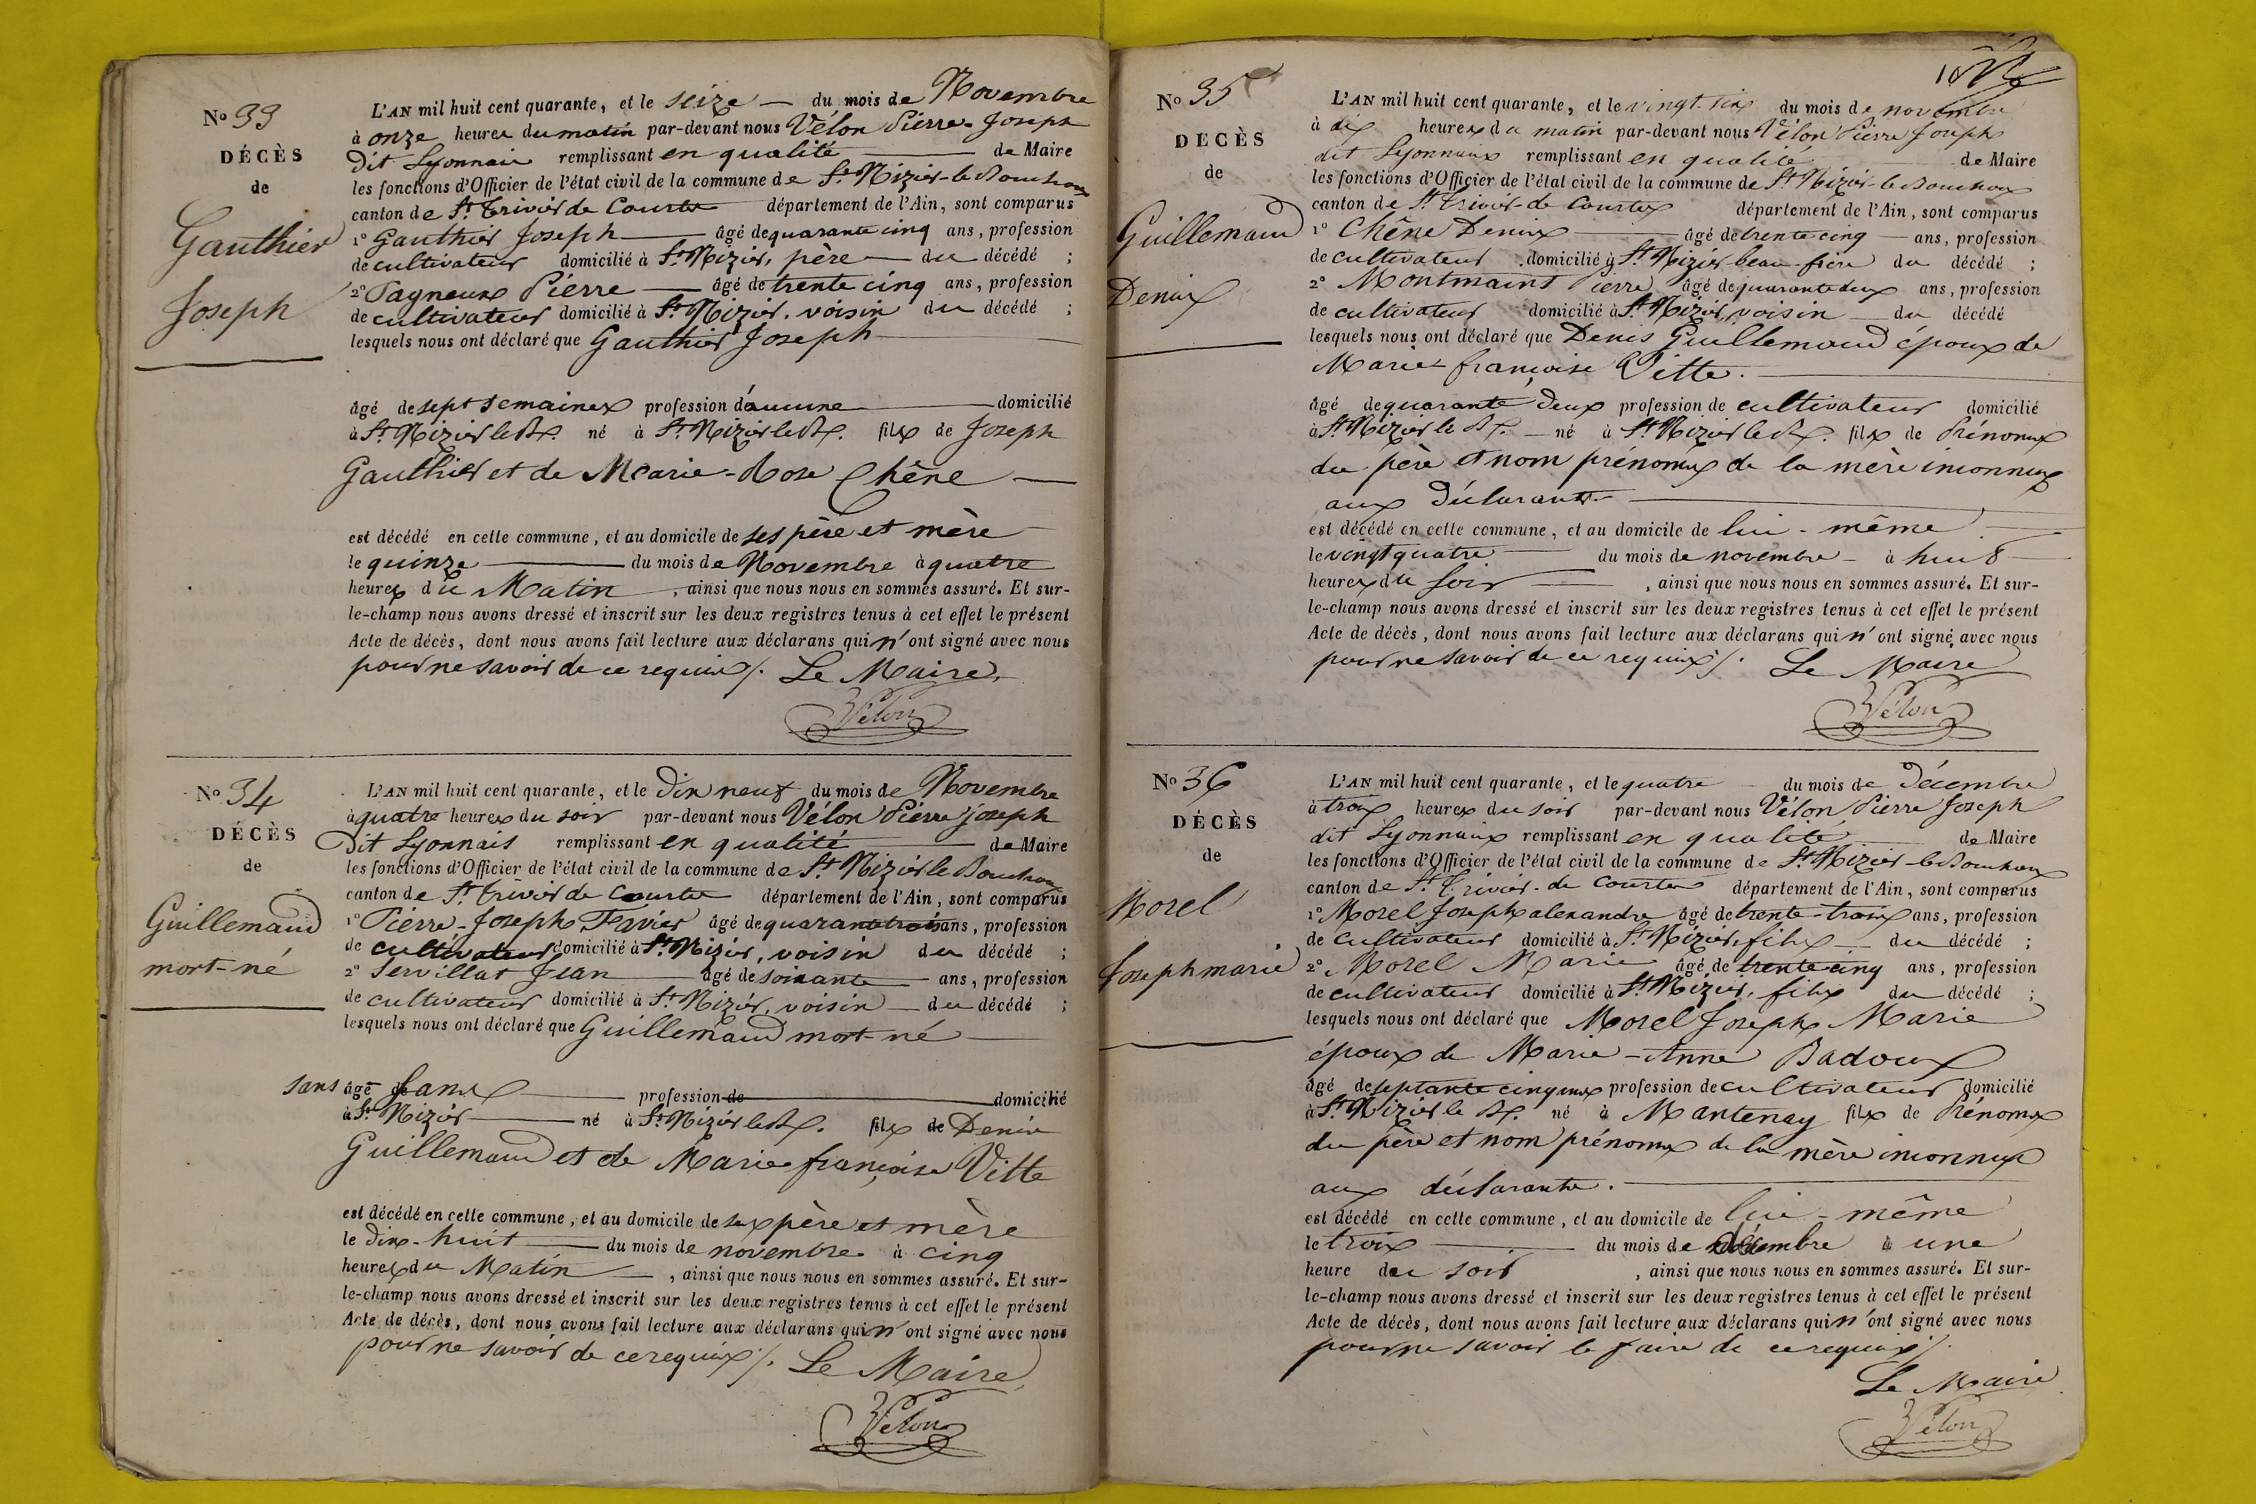 No 33
DÉCÈS
de
Gauthier
Joseph
L'AN mil huit cent quarante, et le seize du mois de Novembre
à onze heures du matin par-devant nous Vélon Pierre-Joseph
dit Lyonnais remplissant en qualité de Maire
les fonctions d'Officier de l'état civil de la commune de St Nizier-le-Bouchoux
canton de St Trivier de Courtes département de l'Ain, sont comparus
1° Gauthier Joseph âgé de quarante cinq ans, profession
de cultivateur domicilié à St Nizier, père du décédé ;
2° Pagneux Pierre âgé de trente cinq ans, profession
de cultivateur domicilié à St Nizier, voisin du décédé ;
lesquels nous ont déclaré que Gauthier Joseph
âgé de sept semaines profession d'aucune domicilié
à St Nizier le Bx. né à St Nizier le Bx. fils de Joseph
Gauthier et de Marie-Rose Chêne
est décédé en cette commune, et au domicile de ses père et mère
le quinze du mois de Novembre à quatre
heures du Matin, ainsi que nous nous en sommes assuré. Et sur-
le-champ nous avons dressé et inscrit sur les deux registres tenus à cet effet le présent
Acte de décès, dont nous avons fait lecture aux déclarans qui n'ont signé avec nous
pour ne savoir de ce requis /. Le Maire,
Vélon
No 34
DÉCÈS
de
Guillemaud
mort-né
L'AN mil huit cent quarante, et le dix neuf du mois de Novembre
à quatre heures du soir par-devant nous Vélon Pierre joseph
dit Lyonnais remplissant en qualité de Maire
les fonctions d'Officier de l'état civil de la commune de St Nizier le Bouchoux
canton de St Trivier de Courtes département de l'Ain, sont comparus
1° Pierre-Joseph Favier âgé de quarante trois ans, profession
de cultivateur domicilié à St Nizier, voisin du décédé ;
2° Servillat Jean âgé de soixante ans, profession
de cultivateur domicilié à St Nizier, voisin du décédé ;
lesquels nous ont déclaré que Guillemaud mort-né
sans âge sans profession de domicilié
à St Nizier né à St Nizier le Bx. fils de Denis
Guillemaud et de Marie françoise Vitte
est décédé en cette commune, et au domicile de ses père et mère
le dix-huit du mois de novembre à cinq
heures du Matin, ainsi que nous nous en sommes assuré. Et sur-
le-champ nous avons dressé et inscrit sur les deux registres tenus à cet effet le présent
Acte de décès, dont nous avons fait lecture aux déclarans qui n'ont signé avec nous
pour ne savoir de ce requis /. Le Maire,
Vélon
No 35
DÉCÈS
de
Guillemaud
Denix
L'AN mil huit cent quarante, et le vingt six du mois de novembre
à dix heures du matin par-devant nous Vélon Pierre Joseph
dit Lyonnaix remplissant en qualité de Maire
les fonctions d'Officier de l'état civil de la commune de St Nizier-le-Bouchoux
canton de St Trivier-de Courtes département de l'Ain, sont comparus
1° Chêne Denix âgé de trente cinq ans, profession
de cultivateur domicilié à St Nizier beau-frère du décédé ;
2° Montmaint Pierre âgé de quarante deux ans, profession
de cultivateur domicilié à St Nizier, voisin du décédé
lesquels nous ont déclaré que Denis Guillemaud époux de
Marie françoise Vitte.
âgé de quarante deux profession de cultivateur domicilié
à St Nizier le Bx. né à St Nizier le Bx. fils de Prénoms
du père et nom prénoms de la mère inconnus
aux déclarants.
est décédé en cette commune, et au domicile de lui-même
le vingt quatre du mois de novembre à huit
heures du soir, ainsi que nous nous en sommes assuré. Et sur-
le-champ nous avons dressé et inscrit sur les deux registres tenus à cet effet le présent
Acte de décès, dont nous avons fait lecture aux déclarans qui n'ont signé avec nous
pour ne savoir de ce requis /. Le Maire
Vélon
No 36
DÉCÈS
de
Morel
Joseph marie
L'AN mil huit cent quarante, et le quatre du mois de décembre
à trois heures du soir par-devant nous Vélon Pierre Joseph
dit Lyonnaix remplissant en qualité de Maire
les fonctions d'Officier de l'état civil de la commune de St Nizier-le Bouchoux
canton de St Trivier-de Courtes département de l'Ain, sont comparus
1° Morel Joseph alexandre âgé de trente-trois ans, profession
de cultivateur domicilié à St Nizier, fils du décédé ;
2° Morel Marie âgé de trente cinq ans, profession
de cultivateur domicilié à St Nizier, fils du décédé ;
lesquels nous ont déclaré que Morel Joseph Marie
époux de Marie-Anne Badoux
âgé de septante cinq ans profession de cultivateur domicilié
à St Nizier le Bx. né à Mantenay fils de Prénoms
du père et nom prénoms de la mère inconnus
aux déclarants.
est décédé en cette commune, et au domicile de lui-même
le trois du mois de décembre à une
heure du soir, ainsi que nous nous en sommes assuré. Et sur-
le-champ nous avons dressé et inscrit sur les deux registres tenus à cet effet le présent
Acte de décès, dont nous avons fait lecture aux déclarans qui n'ont signé avec nous
pour ne savoir le faire de ce requis /.
Le Maire
Vélon